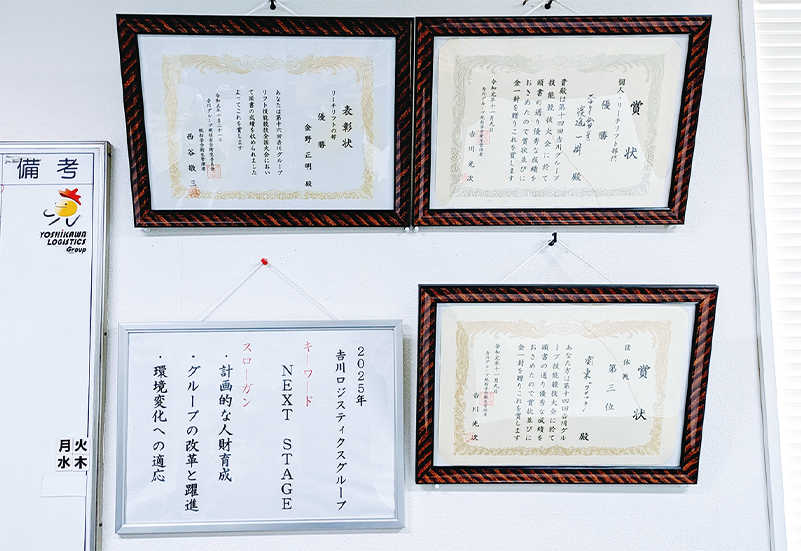 備考
YOSHIKAWA
LOGISTICS
Group
月火
水木
表彰状
リーチリフトの部
優勝
金野正明殿
あなたは第十六回吉川グループ
リフト技能競技全国大会におい
て頭書の成績を収められました
よってこれを賞します
令和元年十一月二十一日
西谷敬三
賞状
個人・リーチリフト部門
優勝
殿
貴殿は第十四回吉川グループ
技能競技大会に於て
頭書の通り優秀な成績を
おさめたので賞状並びに
金一封を贈りこれを賞します
令和元年十一月九日
吉川光次
2025年
吉川ロジスティクスグループ
キーワード
NEXT STAGE
スローガン
・計画的な人財育成
・グループの改革と躍進
・環境変化への適応
賞状
団体戦
第三位
殿
あなた方は第十四回吉川グル
ープ技能競技大会に於て
頭書の通り優秀な成績を
おさめたので賞状並びに
金一封を贈りこれを賞します
令和元年十一月九日
吉川光次